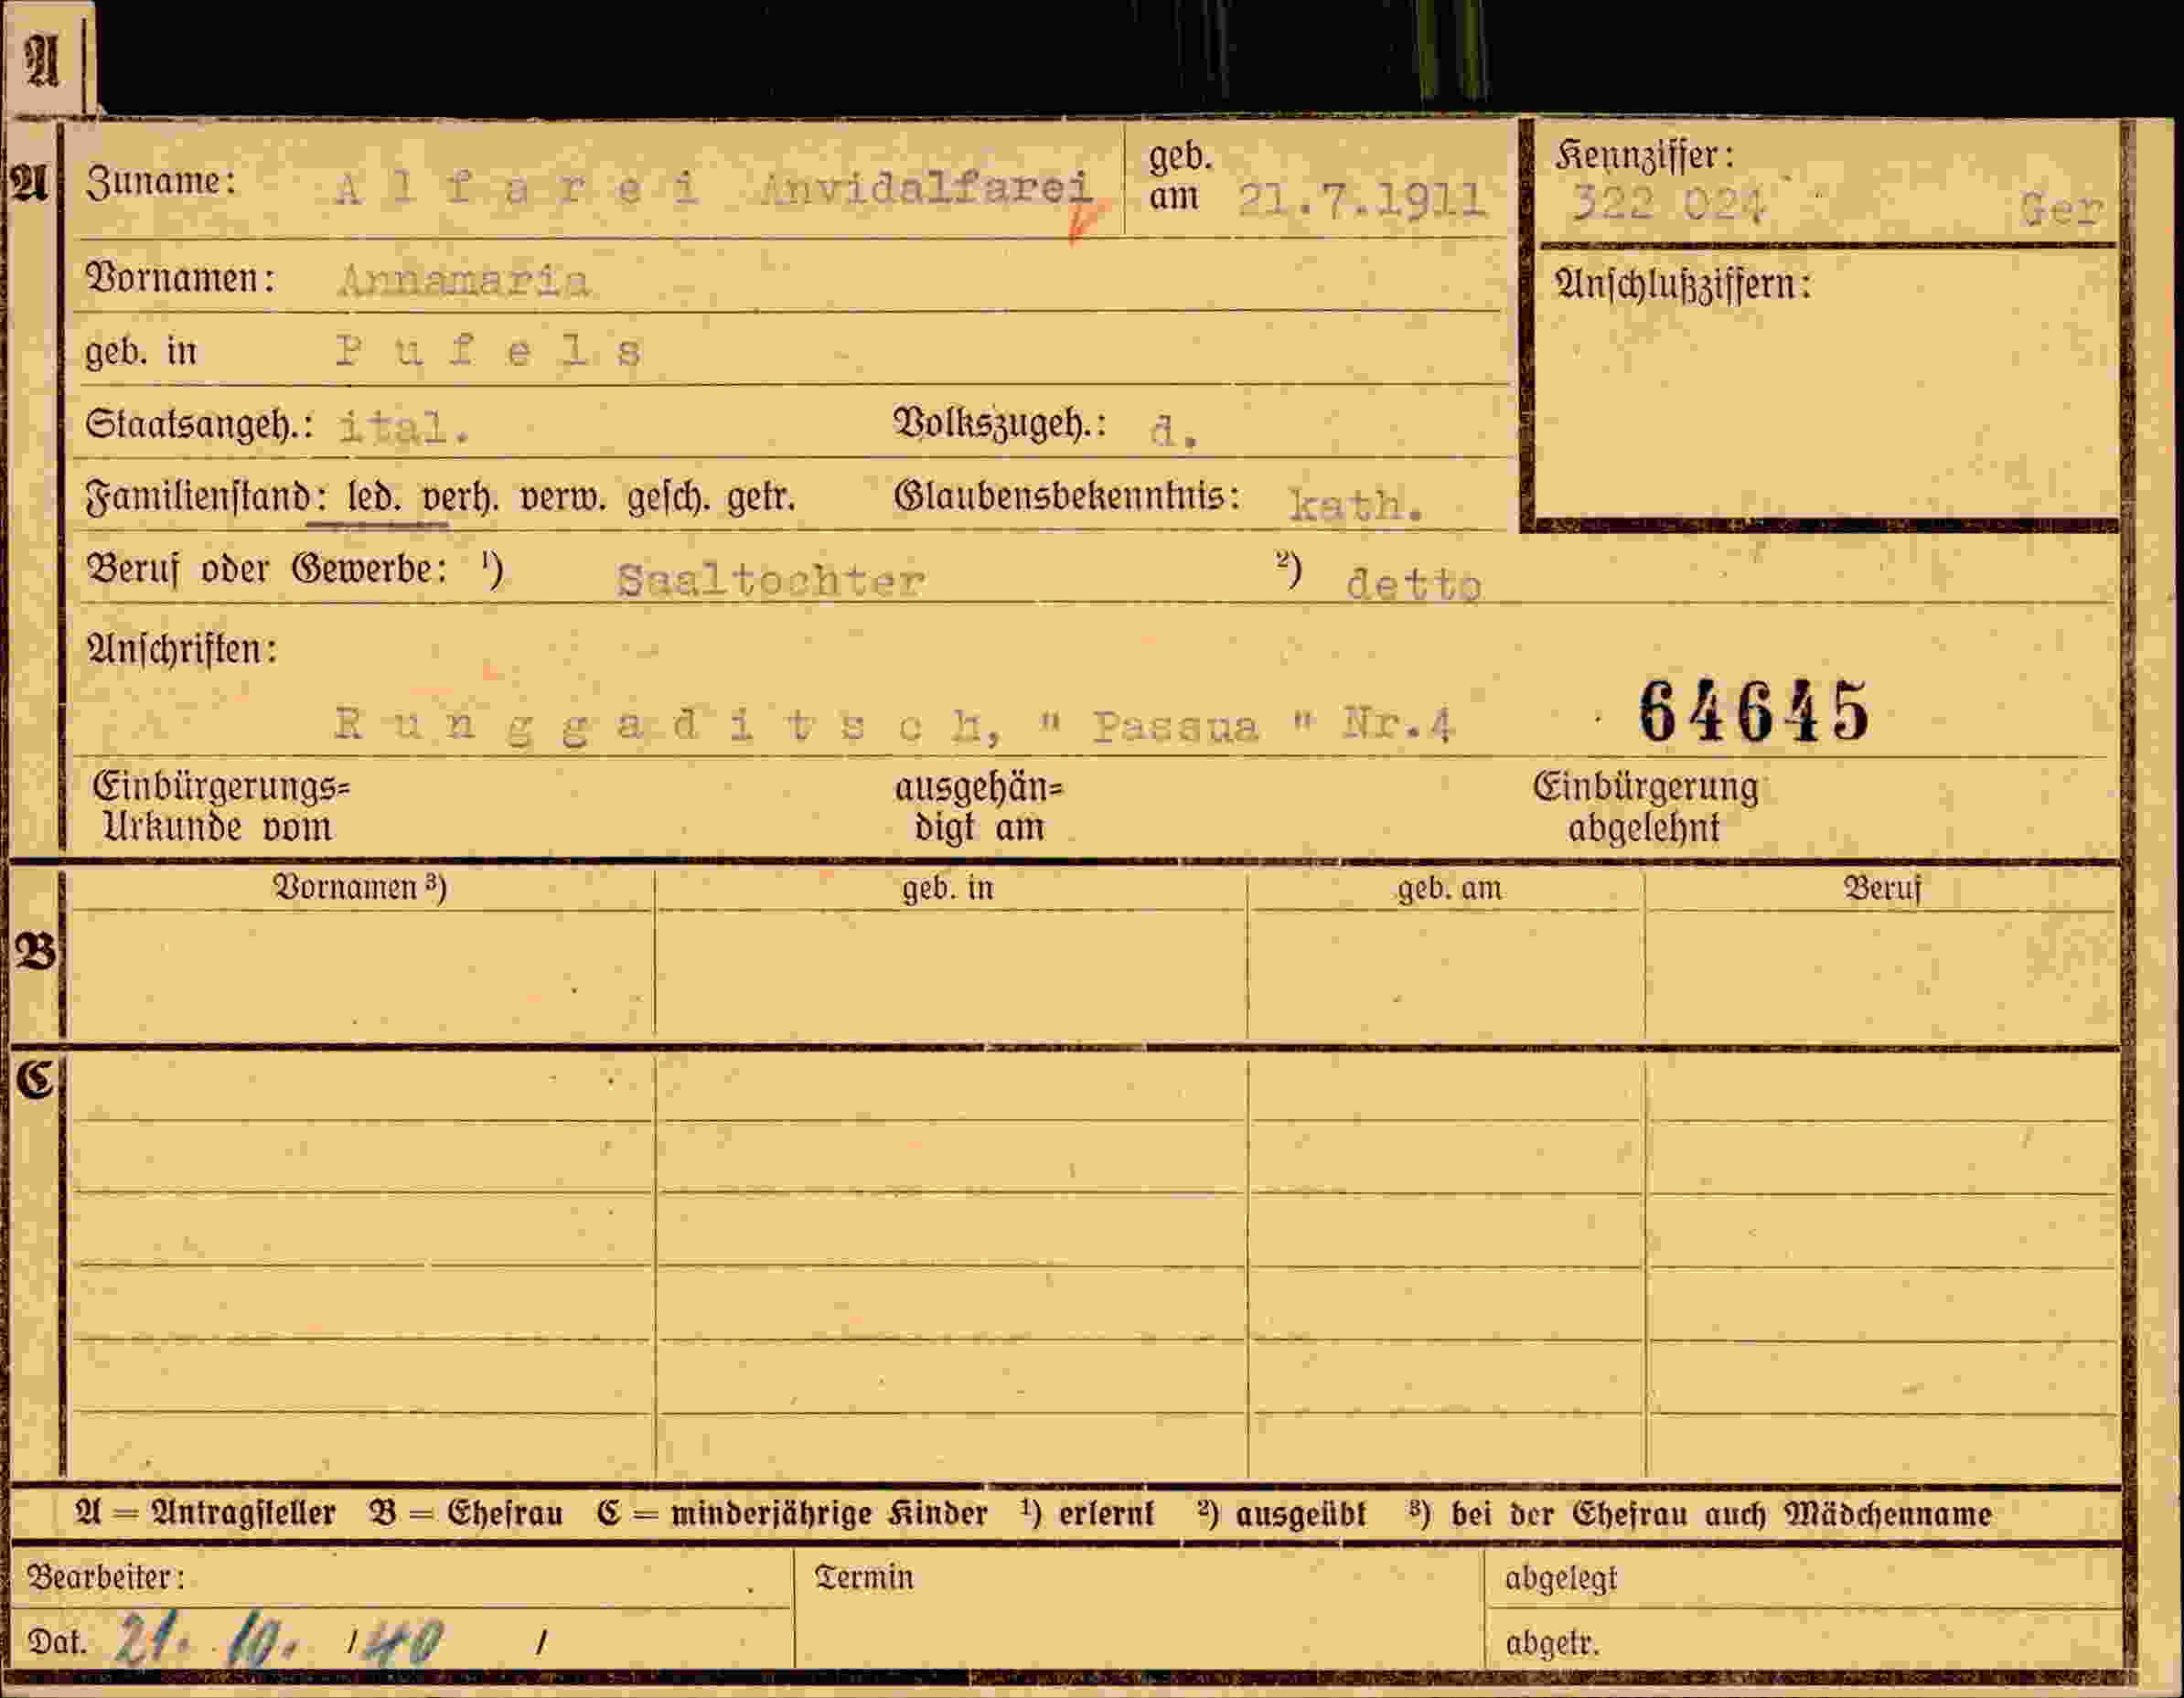 A
A Zuname: Alfarei Anvidalfarei geb. am 21.7.1911 Kennziffer: 322 024 Ger
Vornamen: Annamaria Anschlußziffern:
geb. in Pufels
Staatsangeh.: ital. Volkszugeh.: d.
Familienstand: led. verh. verw. gesch. getr. Glaubensbekenntnis: kath.
Beruf oder Gewerbe: 1) Saaltochter 2) detto
Anschriften:
Runggaditsch, " Passua " Nr.4 64645
Einbürgerungs= ausgehän= Einbürgerung
Urkunde vom digt am abgelehnt
Vornamen 3) geb. in geb. am Beruf
B
C
A = Antragsteller B = Ehefrau C = minderjährige Kinder 1) erlernt 2) ausgeübt 3) bei der Ehefrau auch Mädchenname
Bearbeiter: Termin abgelegt
Dat. 21. 10. / 40 / abgetr.